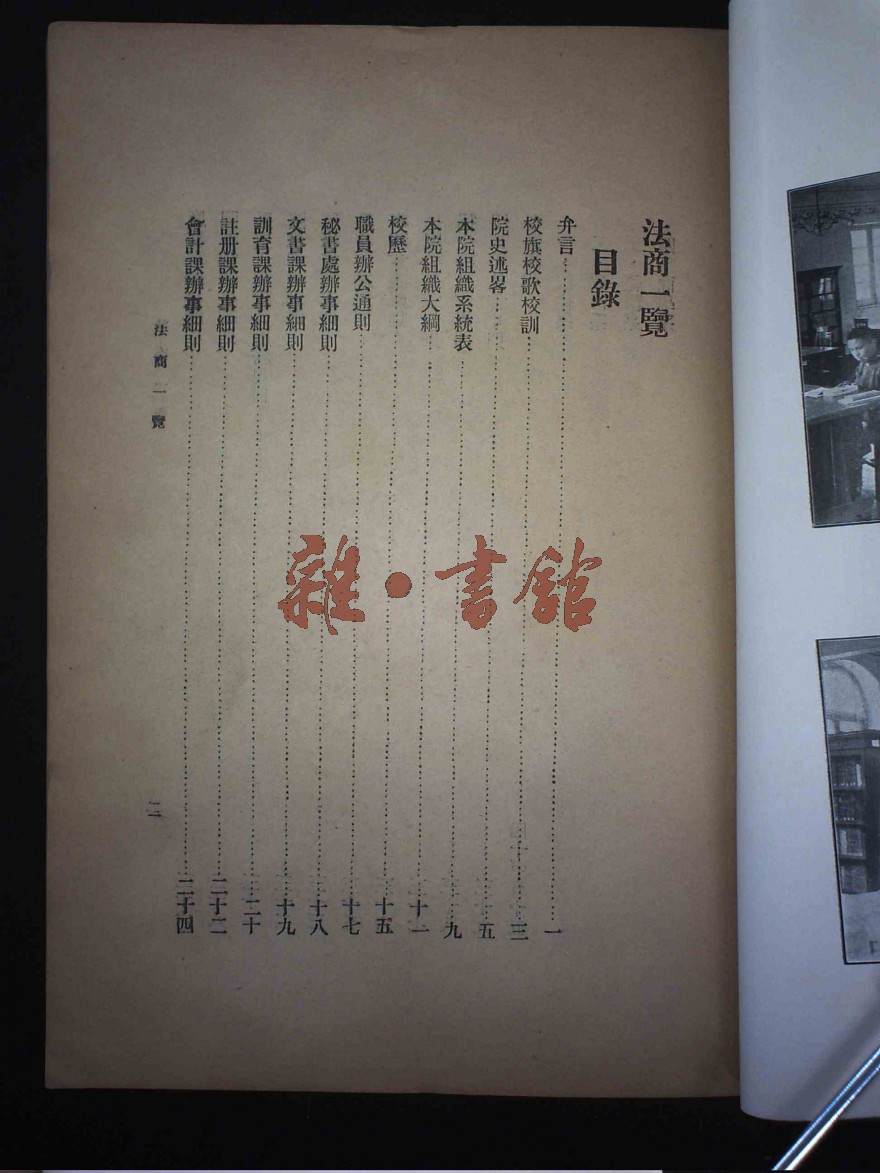 法商一覽
目錄
弁言……一
校旗校歌校訓……三
院史述畧……五
本院組織系統表……九
本院組織大綱……十一
校歷……十五
職員辦公通則……十七
秘書處辦事細則……十八
文書課辦事細則……十九
訓育課辦事細則……二十
註册課辦事細則……二十二
會計課辦事細則……二十四
法商一覽
二
雜·書館